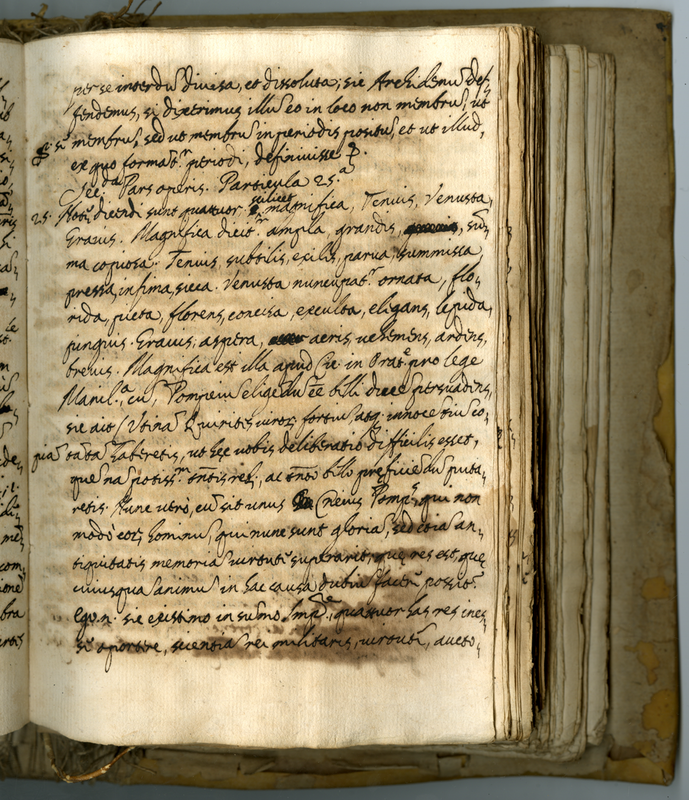 per se interdū divisa, et dissoluta; sic Archidemū def-
fendemus, si dixerimus illū eo in loco non membrū, ut
membrū, sed ut membrū in periodis positū, et ut illud,
ex quo formatr periodi, definivisse.
Secda Pars operis. Particula 25.a
25. Notę dicendi sunt quatuor scilicet magnifica, Tenuis, Venusta,
Gravis. Magnifica dicitr ampla, grandis, sū-
ma copiosa. Tenuis, subtilis, exilis, parva, summissa
pressa, infima, sicca. Venusta nuncupatr ornata, flo-
rida, picta, florens, concisa, exculta, eligans, lepida,
pungens. Gravis, aspera, acris, vehemens, ardens,
brevis. Magnifica est illa apud Cic. in Orat.e pro lege
Manil.a, cū Pompeiū eligendū ēē belli ducē persuadens,
sic ait (Utinā Quirites virorū fortiū, atq. innocētiū co-
piā tātā haberetis, ut hęc vobis deliberatio difficilis esset,
quē nā potissm tantis reb., ac tāto bello pręficiēdū puta-
retis. Nunc vero, cū sit unus Cneius Pomp.s, qui non
modò eorū hominū, qui nunc sunt gloriā, sed etiā an-
tiquitatis memoriā virtute superarit, quę res est, quę
cuiusquā animū in hac causa dubiū facere possit
Ego .n. sic existimo in sūmo Imp.re, quatuor has res ines-
se oportere, scientiā rei militaris, virtutē, aucto-